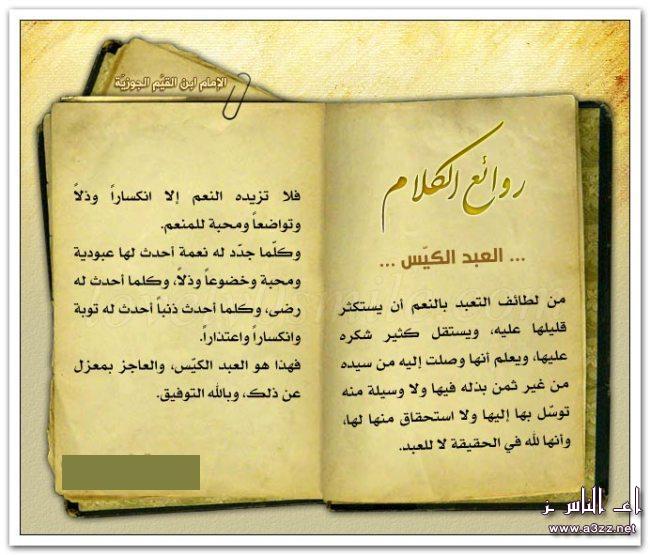 الإمام ابن القيّم الجوزيّة
روائع الكلام
... العبد الكيّس ...
من لطائف التعبد بالنعم أن يستكثر
قليلها عليه، ويستقل كثير شكره
عليها، ويعلم أنها وصلت إليه من سيده
من غير ثمن بذله فيها ولا وسيلة منه
توسّل بها إليها ولا استحقاق منها لها،
وأنها لله في الحقيقة لا للعبد.
فلا تزيده النعم إلا انكساراً وذلاً
وتواضعاً ومحبة للمنعم.
وكلّما جدّد له نعمة أحدث لها عبودية
ومحبة وخضوعاً وذلاً، وكلما أحدث له
رضى، وكلما أحدث ذنباً أحدث له توبة
وانكساراً واعتذاراً.
فهذا هو العبد الكيّس، والعاجز بمعزل
عن ذلك، وبالله التوفيق.
www.a3zz.net